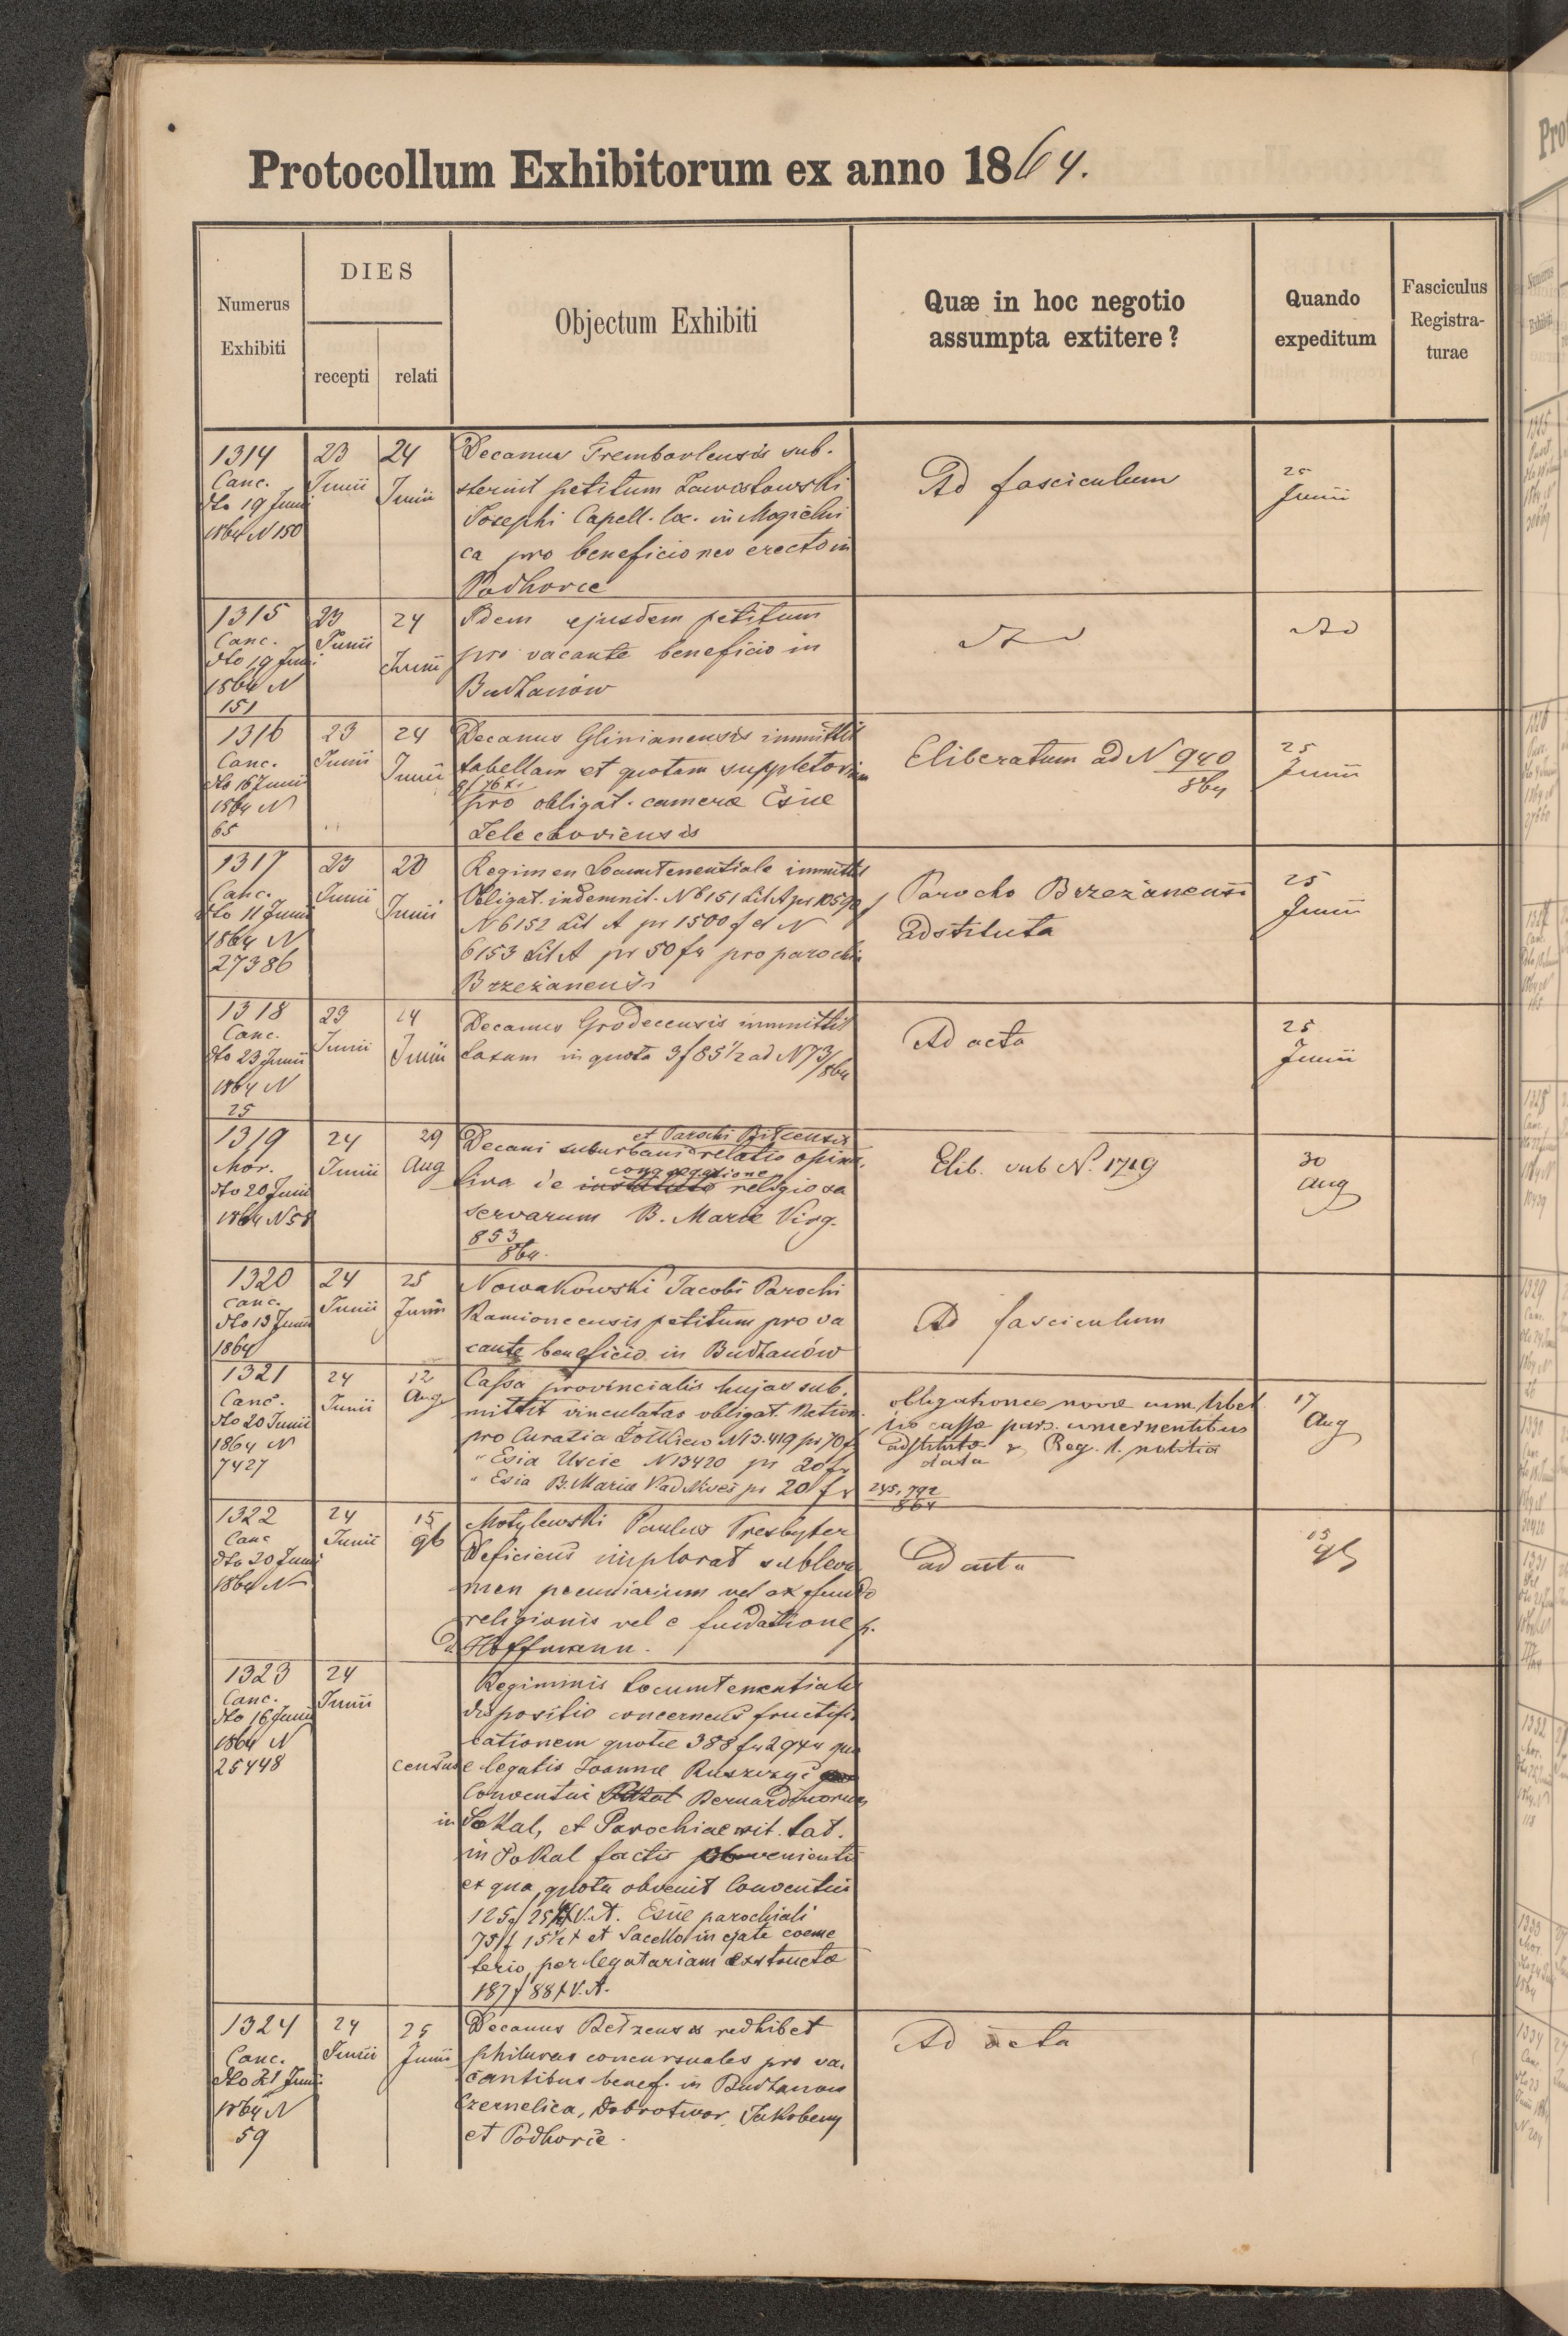 Protocollum Exhibitorum ex anno 1864.
Numerus
Exhibiti
DIES
recepti
relati
Objectum Exhibiti
Quæ in hoc negotio
assumpta extitere?
Quando
expeditum
Fasciculus
Registra-
turae
1314
Canc.
dto 19 Junii
1864 N 150
23
Junii
24
Junii
Decanus Trembovlensis sub-
sternit petitum
Josephi Capell. loc. in Mogielni
ca pro beneficio neo erecto in
Podhorce
Ad fasciculum
25
Junii
1315
Canc.
dto 19 Juni
1864 N
151
23
Junii
24
Junii
Idem ejusdem petitum
pro vacante beneficio in
Budzanów
1316
Canc.
dto 16 Junii
1864 N
65
23
Junii
24
Junii
Decanus Glinianensis immittit
tabellam et quotam suppletoriam
pro obligat. camerae Esiae
Zelechoviensis
Eliberatum ad N 940
864
25
Junii
1317
Canc.
dto 11 Junii
1864 N
27386
23
Junii
Junii
Regimen Locumtenentiale immittit
Obligat. indemnit. N 6151 Lit A pr 10590 f
N 6152 Lit A pr 1500 f et N
6153 Lit A pr 50 fr pro parochi
Brzezanensi
Parocho Brzezanensi
adstituta
25
Junii
1318
Canc.
dto 23 Junii
1864 N
25
23
Junii
24
Junii
Decanus Grodecensis immittit
taxam in quota 3 f 85 1/2 ad N 73/864
Ad acta
25
Junii
1319
Mor.
dto 20 Junii
1864 N 58
24
Junii
29
Aug
et Parochi
Decani suburbani relatio opina-
congregatione
tiva de instituto religiosa
servarum B. Mariae Virg.
853
864.
Elib. sub N. 1719
30
Aug
1320
Canc.
dto 13 Junii
1864
24
Junii
25
Junii
Nowakowski Jacobi Parochi
Kamioncensis petitum pro va
cante beneficio in Budzanów
Ad fasciculum
1321
Canc.
dto 20 Junii
1864 N
7427
24
Junii
12
Aug
Cassa provincialis hujas sub-
mittit vinculatas obligat. Nation.
pro Curatia Zolkiew N 13.419 pr 70 fr
" Esia Uscie N 13420 pr 20 fr
" Esia B. Mariae pr 20 fr
obligationes novae
cassae
adstitutae & Reg. l. notitia
data
245, 792
864
17
Aug
1322
Canc
dto 20 Junii
1864 N
24
Junii
15
9b
Motylewski Paulus Presbyter
deficiens implorat subleva
men pecuniarium vel ex fundo
religionis vel e fundatione p.
d. Hoffmann.
ad acta
15
9b
1323
Canc.
dto 16 Junii
1864 N
25448
24
Junii
Regiminis Locumtenentialis
dispositio concernens fructifi
cationem quotae 388 fr 29
censu e legatis Joannae Ruszczyc
Conventui Bernardinorum
in Sokal, et Parochiae rit. lat.
in Sokal factis obvenienti
ex qua quota obvenit Conventui
125 f V.A. Esiae parochiali
75 f 15 1/2 x et Sacello in ejate coeme
terio per legatariam exstructo
187 f 88 x V.A.
1324
Canc.
dto 21 Juni
1864 N
59
24
Junii
25
Junii
Decanus Belzensis redhibet
philuras concursuales pro va-
cantibus benef. in Budzanow
Czernelica, Dobrotwor, Jakobeny
et Podhorce.
Ad acta